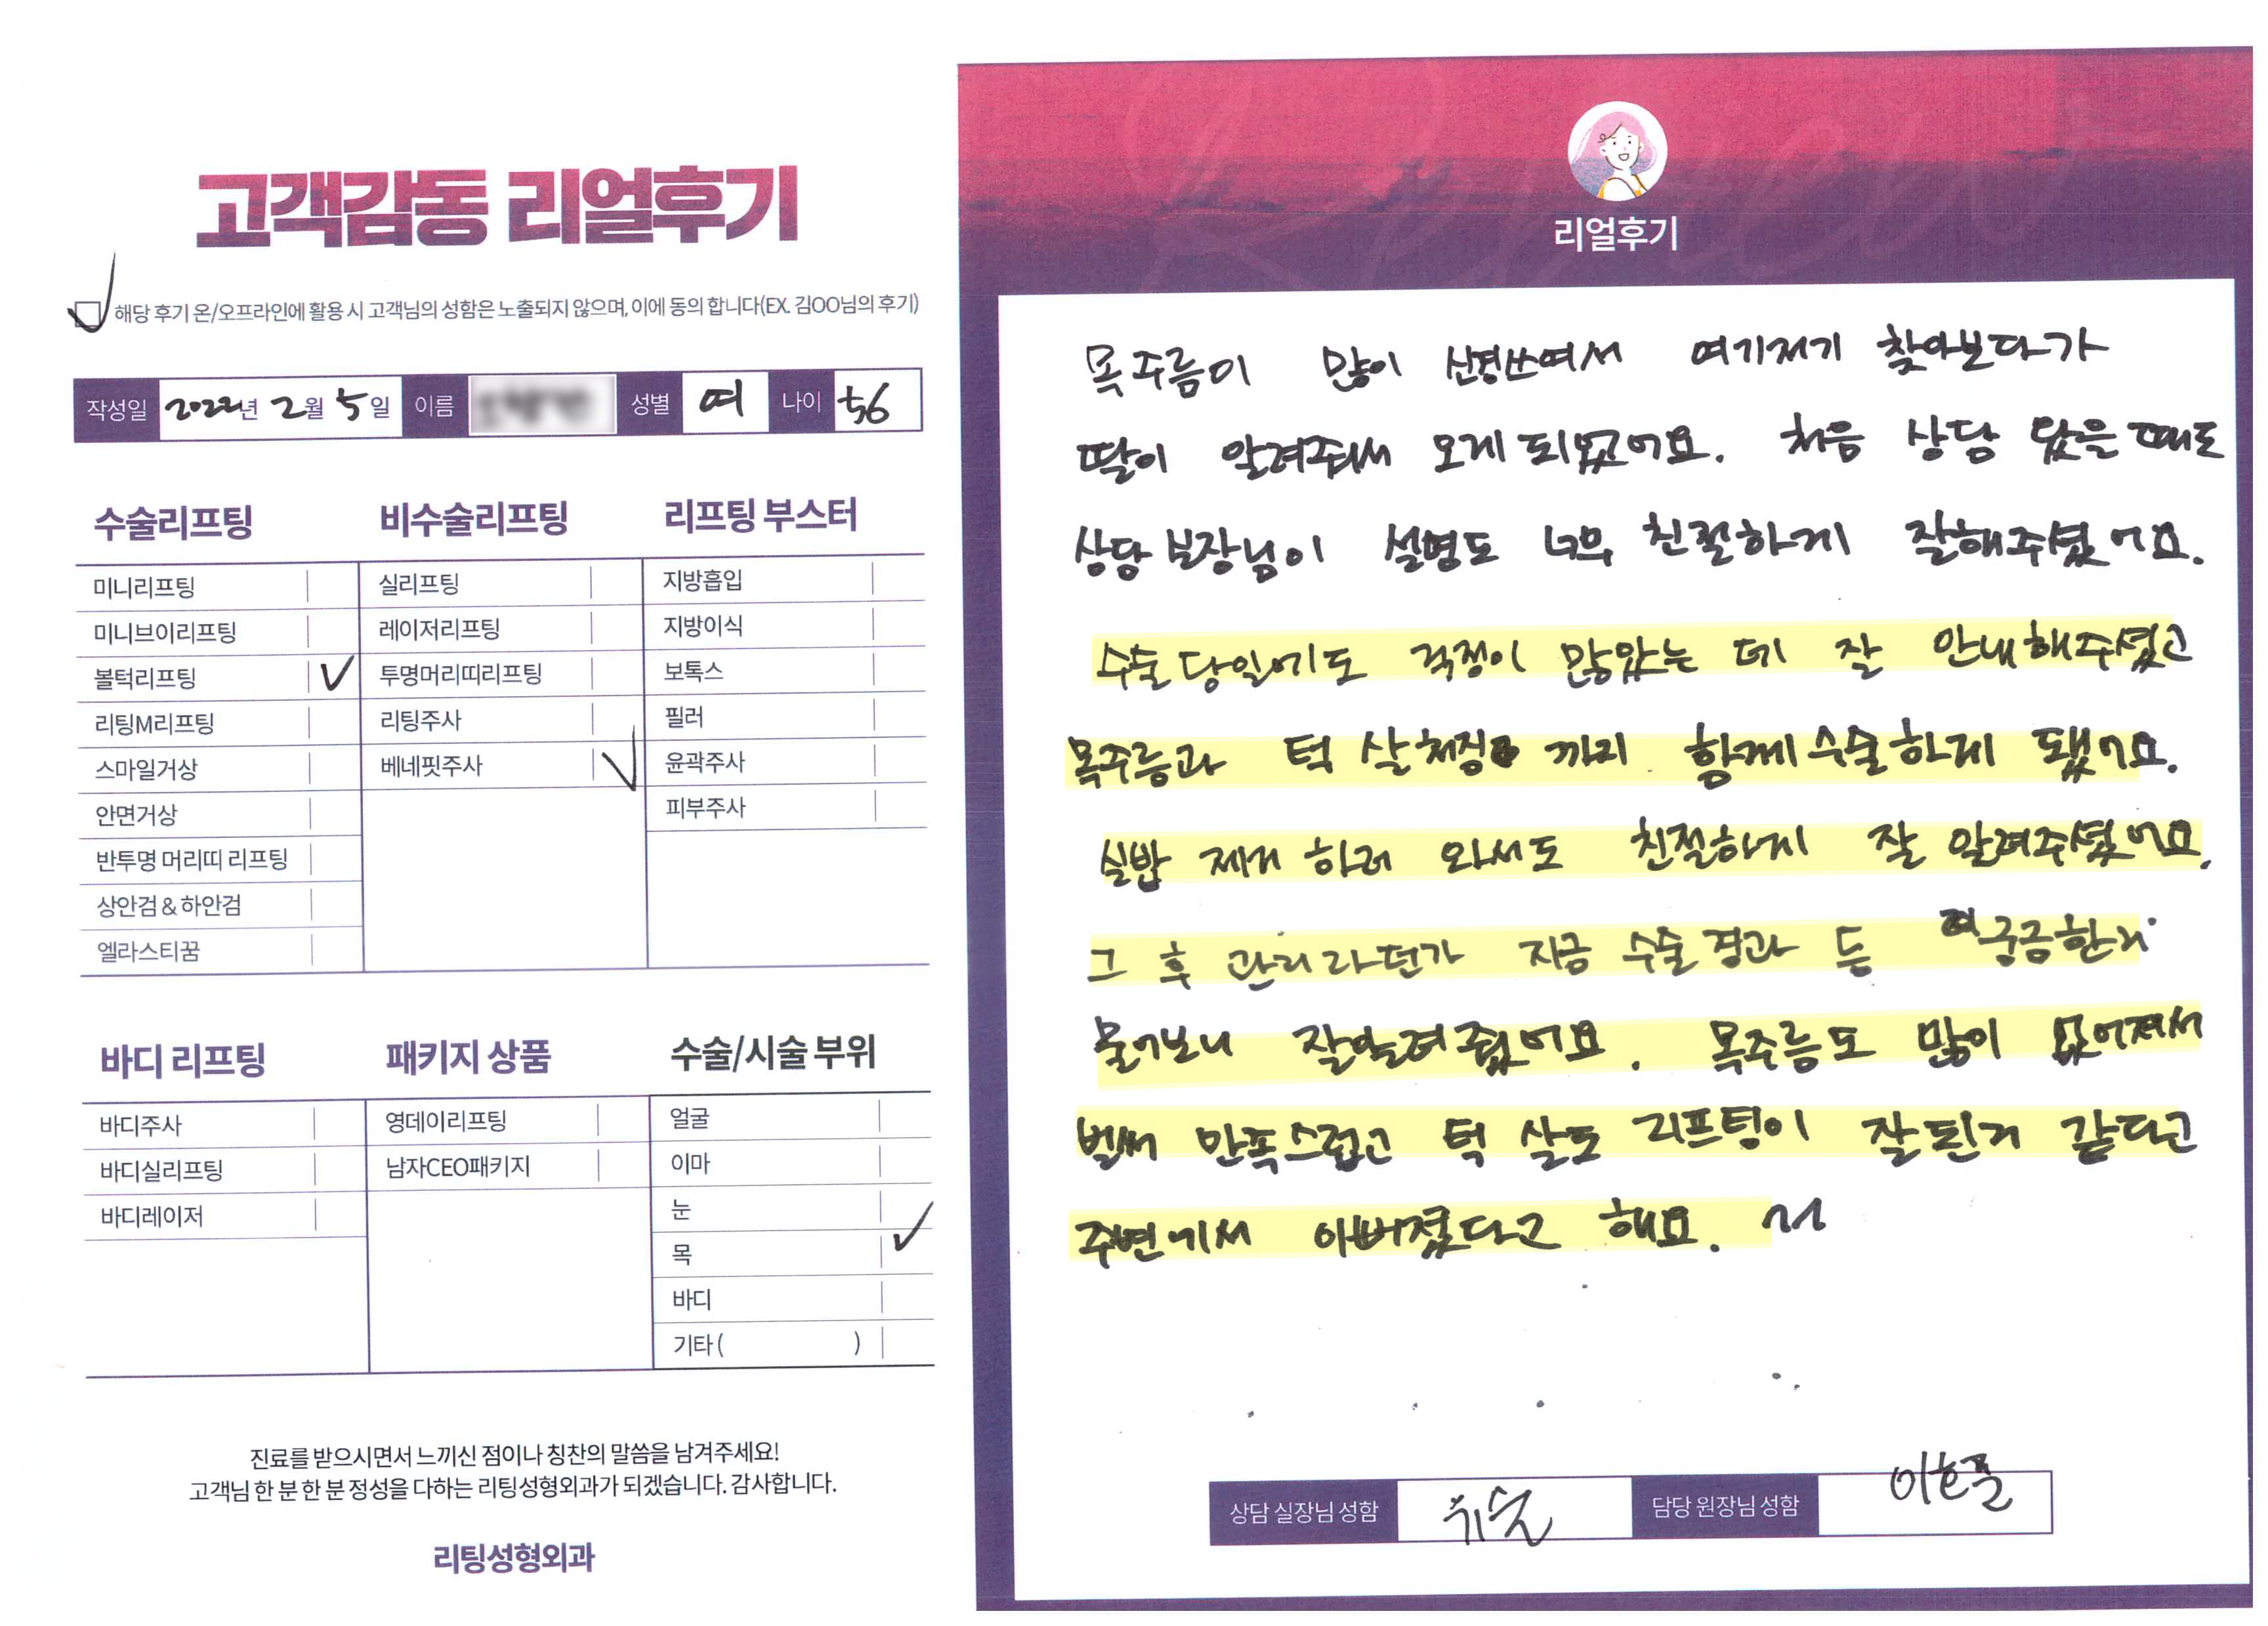 고객감동 리얼후기
해당 후기 온/오프라인에 활용 시 고객님의 성함은 노출되지 않으며, 이에 동의 합니다(EX. 김OO님의 후기)
작성일 2022년 2월 5일 이름 성별 여 나이 56
수술리프팅
미니리프팅
미니브이리프팅
볼턱리프팅
리팅M리프팅
스마일거상
안면거상
반투명 머리띠 리프팅
상안검 & 하안검
엘라스티꿈
비수술리프팅
실리프팅
레이저리프팅
투명머리띠리프팅
리팅주사
베네핏주사
리프팅 부스터
지방흡입
지방이식
보톡스
필러
윤곽주사
피부주사
바디 리프팅
바디주사
바디실리프팅
바디레이저
패키지 상품
영데이리프팅
남자CEO패키지
수술/시술 부위
얼굴
이마
눈
목
바디
기타 ( )
진료를 받으시면서 느끼신 점이나 칭찬의 말씀을 남겨주세요!
고객님 한 분 한 분 정성을 다하는 리팅성형외과가 되겠습니다. 감사합니다.
리팅성형외과
리얼후기
목주름이 많이 신경쓰여서 여기저기 찾아보다가
딸이 알려줘서 오게 되었어요. 처음 상담 왔을 때도
상담 실장님이 설명도 너무 친절하게 잘해주셨어요.
수술 당일에도 걱정이 많았는데 잘 안내해주셨고
목주름과 턱 살처짐 까지 함께 수술하게 됐어요.
실밥 제거 하러 와서도 친절하게 잘 알려주셨어요.
그 후 관리라던가 지금 수술 경과 든 궁금한거
물어보니 잘알려줬어요. 목주름도 많이 없어져서
벌써 만족스럽고 턱 살도 리프팅이 잘된거 같다고
주변에서 이뻐졌다고 해요. ~~
상담 실장님 성함 담당 원장님 성함